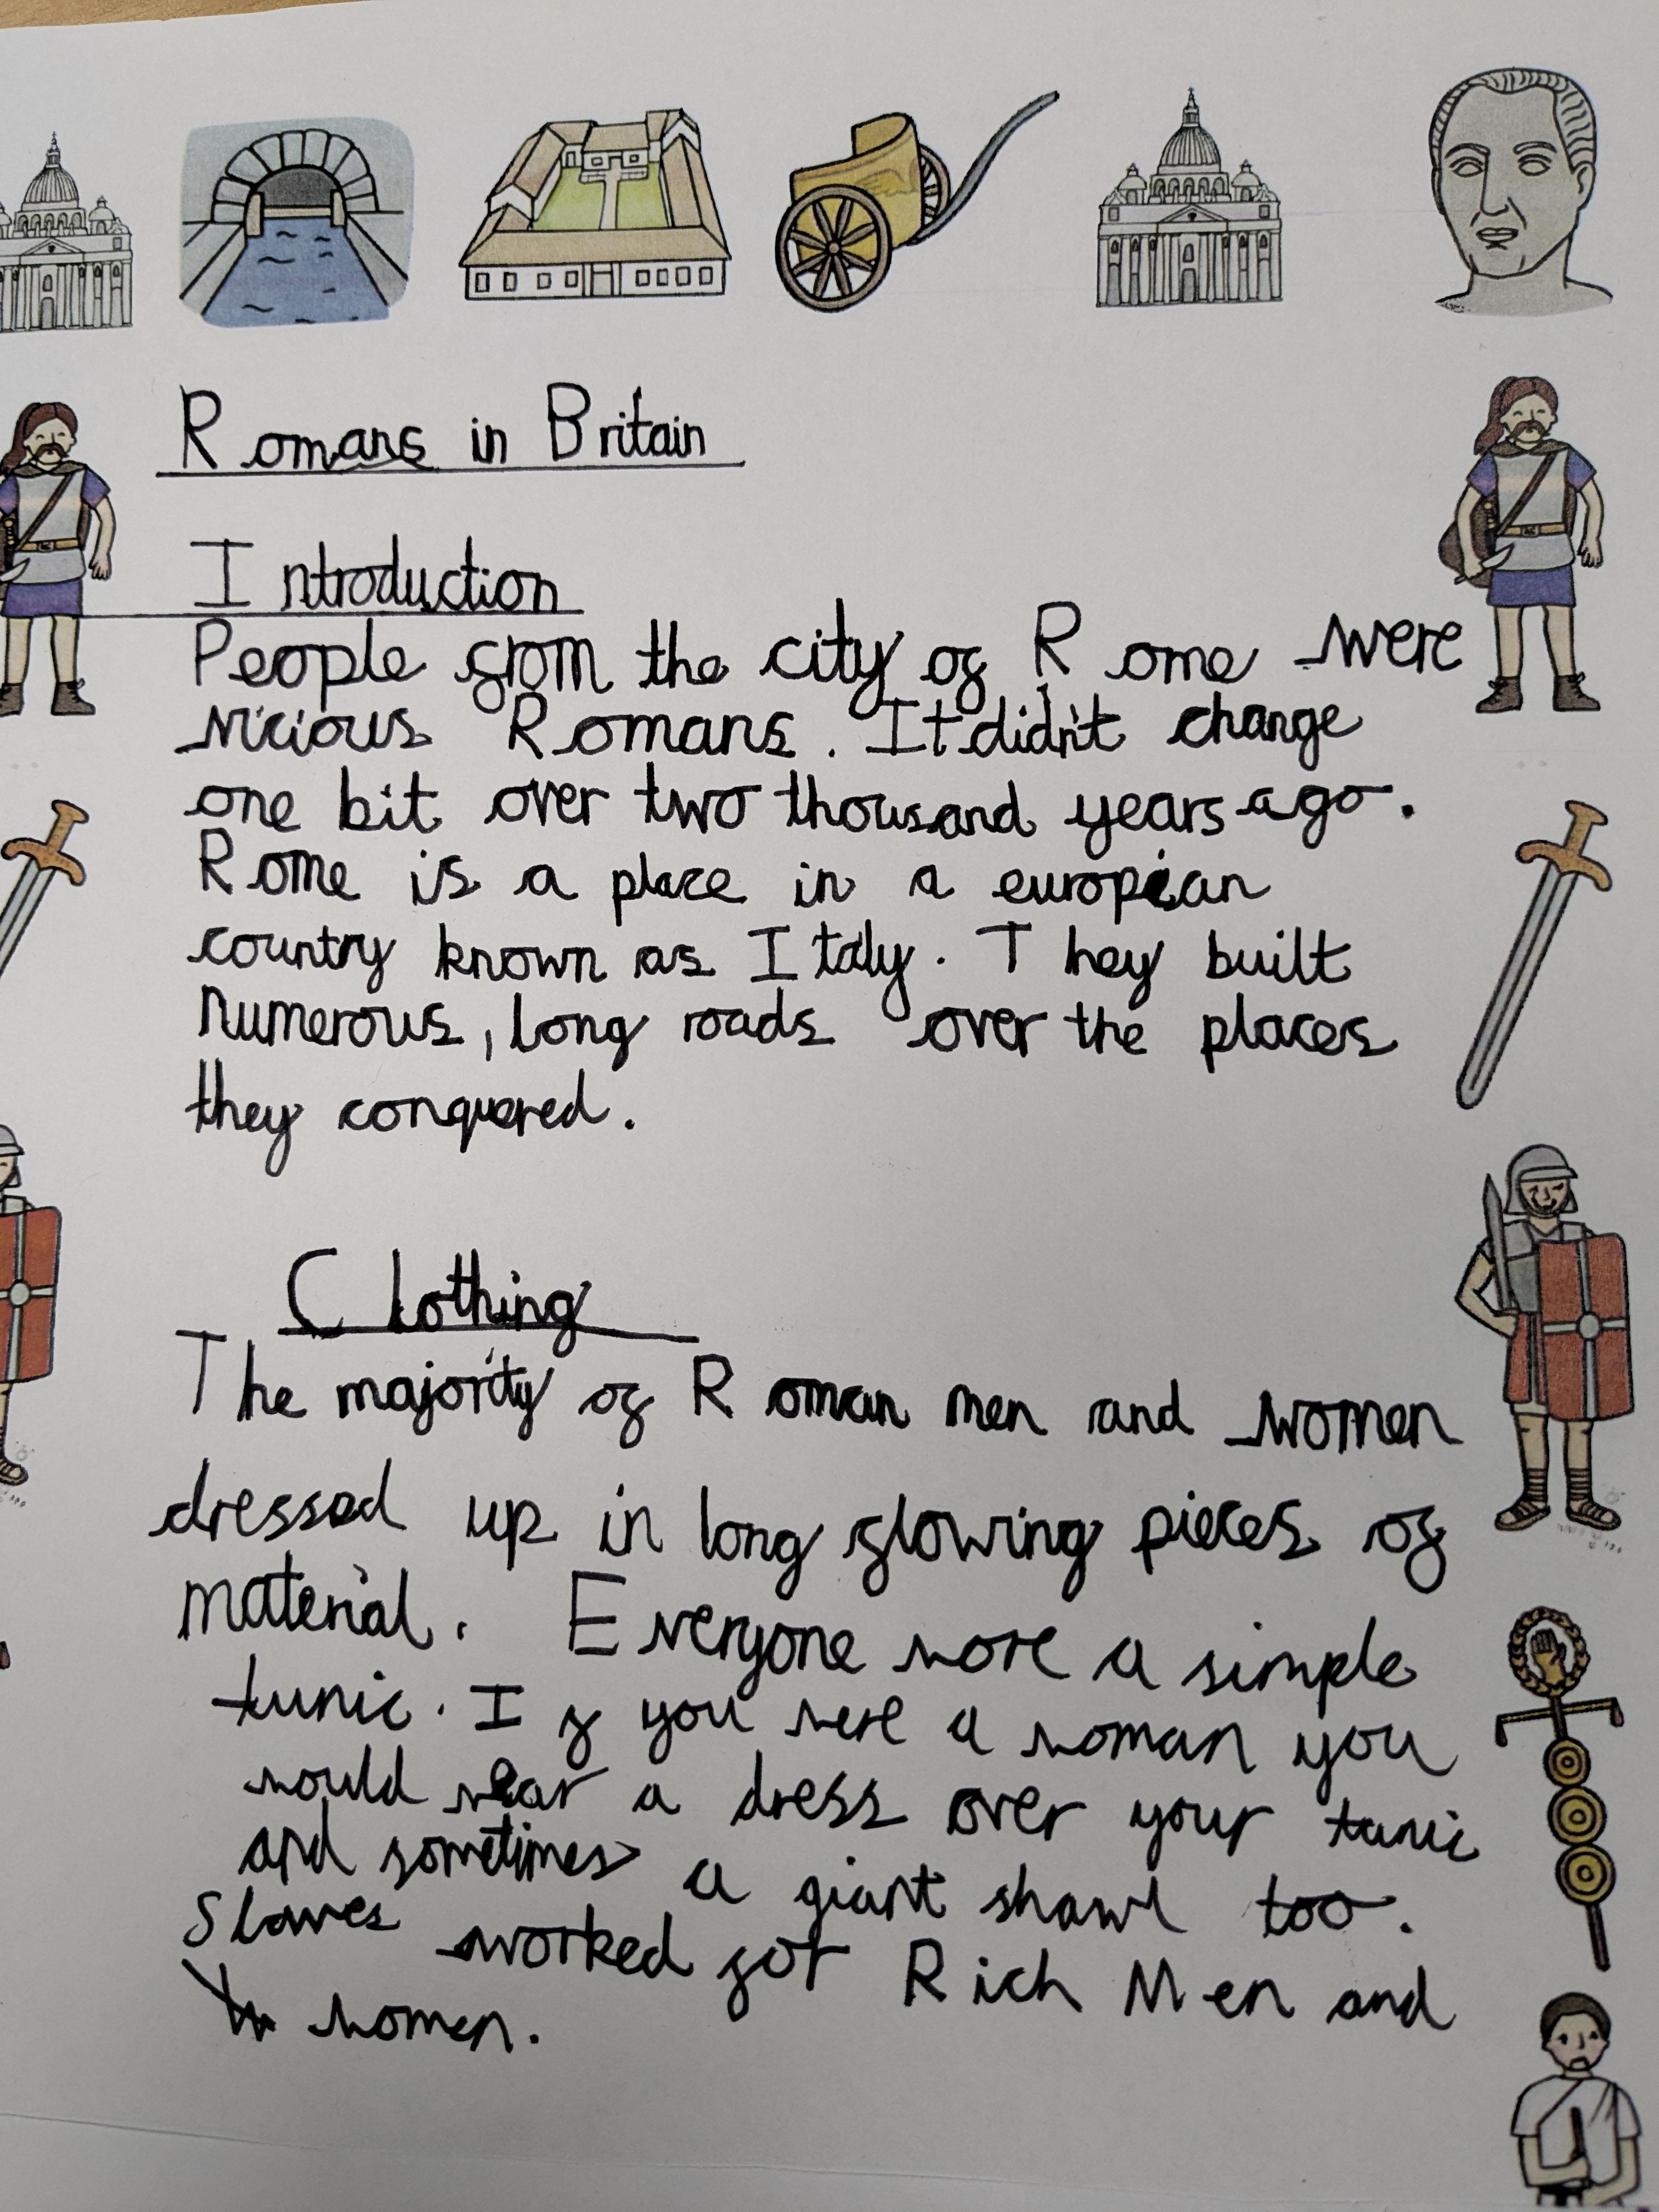 Romans in Britain
Introduction
People from the city of Rome were
vicious Romans. It didn't change
one bit over two thousand years ago.
Rome is a place in a european
country known as Italy. They built
numerous, long roads over the places
they conquered.
Clothing
The majority of Roman men and women
dressed up in long flowing pieces of
material. Everyone wore a simple
tunic. If you were a woman you
would wear a dress over your tunic
and sometimes a giant shawl too.
Slaves worked for Rich Men and
women.